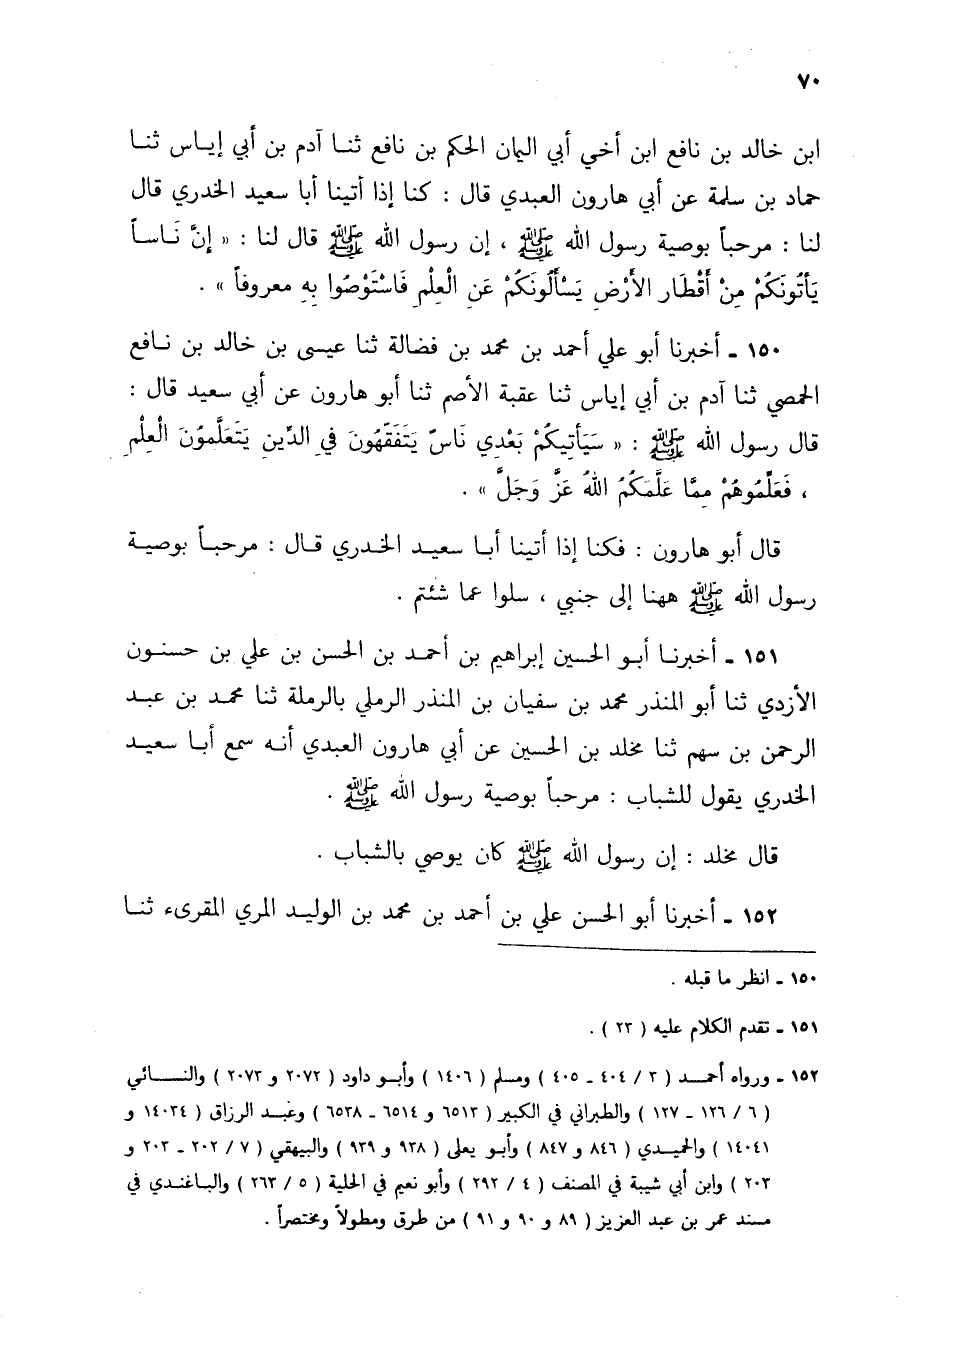 ٧٠
ابن خالد بن نافع ابن أخي أبي اليمان الحكم بن نافع ثنا آدم بن أبي إياس ثنا
حماد بن سلمة عن أبي هارون العبدي قال : كنا إذا أتينا أبا سعيد الخدري قال
لنا : مرحباً بوصية رسول الله ﷺ ، إن رسول الله ﷺ قال لنا : « إِنَّ نَاساً
يَأتُونَكُمْ مِنْ أَقْطَارِ الأَرْضِ يَسْأَلُونَكُمْ عَنِ الْعِلْمِ فَاسْتَوْصُوا بِهِ معروفاً » .
١٥٠ ـ أخبرنا أبو علي أحمد بن محمد بن فضالة ثنا عيسى بن خالد بن نافع
الحمصي ثنا آدم بن أبي إياس ثنا عقبة الأصم ثنا أبو هارون عن أبي سعيد قال :
قال رسول الله ﷺ : « سَيَأتِيكُمْ بَعْدِي نَاسٌ يَتَفَقَّهُونَ فِي الدِّينِ يَتَعَلَّمُونَ الْعِلْمَ
، فَعَلِّمُوهُمْ مِمَّا عَلَّمَكُمُ اللهُ عَزَّ وَجَلَّ » .
قال أبو هارون : فكنا إذا أتينا أبا سعيد الخدري قال : مرحباً بوصية
رسول الله ﷺ ههنا إلى جنبي ، سلوا عما شئتم .
١٥١ ـ أخبرنا أبو الحسين إبراهيم بن أحمد بن الحسن بن علي بن حسنون
الأزدي ثنا أبو المنذر محمد بن سفيان بن المنذر الرملي بالرملة ثنا محمد بن عبد
الرحمن بن سهم ثنا مخلد بن الحسين عن أبي هارون العبدي أنه سمع أبا سعيد
الخدري يقول للشباب : مرحباً بوصية رسول الله ﷺ .
قال مخلد : إن رسول الله ﷺ كان يوصي بالشباب .
١٥٢ ـ أخبرنا أبو الحسن علي بن أحمد بن محمد بن الوليد المري المقرىء ثنا
١٥٠ ـ انظر ما قبله .
١٥١ ـ تقدم الكلام عليه ( ٢٣ ) .
١٥٢ ـ ورواه أحمد ( ٣ / ٤٠٤ ـ ٤٠٥ ) ومسلم ( ١٤٠٦ ) وأبو داود ( ٢٠٧٢ و ٢٠٧٣ ) والنسائي
( ٦ / ١٢٦ ـ ١٢٧ ) والطبراني في الكبير ( ٦٥١٣ و ٦٥١٤ ـ ٦٥٣٨ ) وعبد الرزاق ( ١٤٠٣٤ و
١٤٠٤١ ) والحميدي ( ٨٤٦ و ٨٤٧ ) وأبو يعلى ( ٩٣٨ و ٩٣٩ ) والبيهقي ( ٧ / ٢٠٢ ـ ٢٠٣ و
٢٠٣ ) وابن أبي شيبة في المصنف ( ٤ / ٢٩٢ ) وأبو نعيم في الحلية ( ٥ / ٣٦٣ ) والباغندي في
مسند عمر بن عبد العزيز ( ٨٩ و ٩٠ و ٩١ ) من طرق ومطولاً ومختصراً .